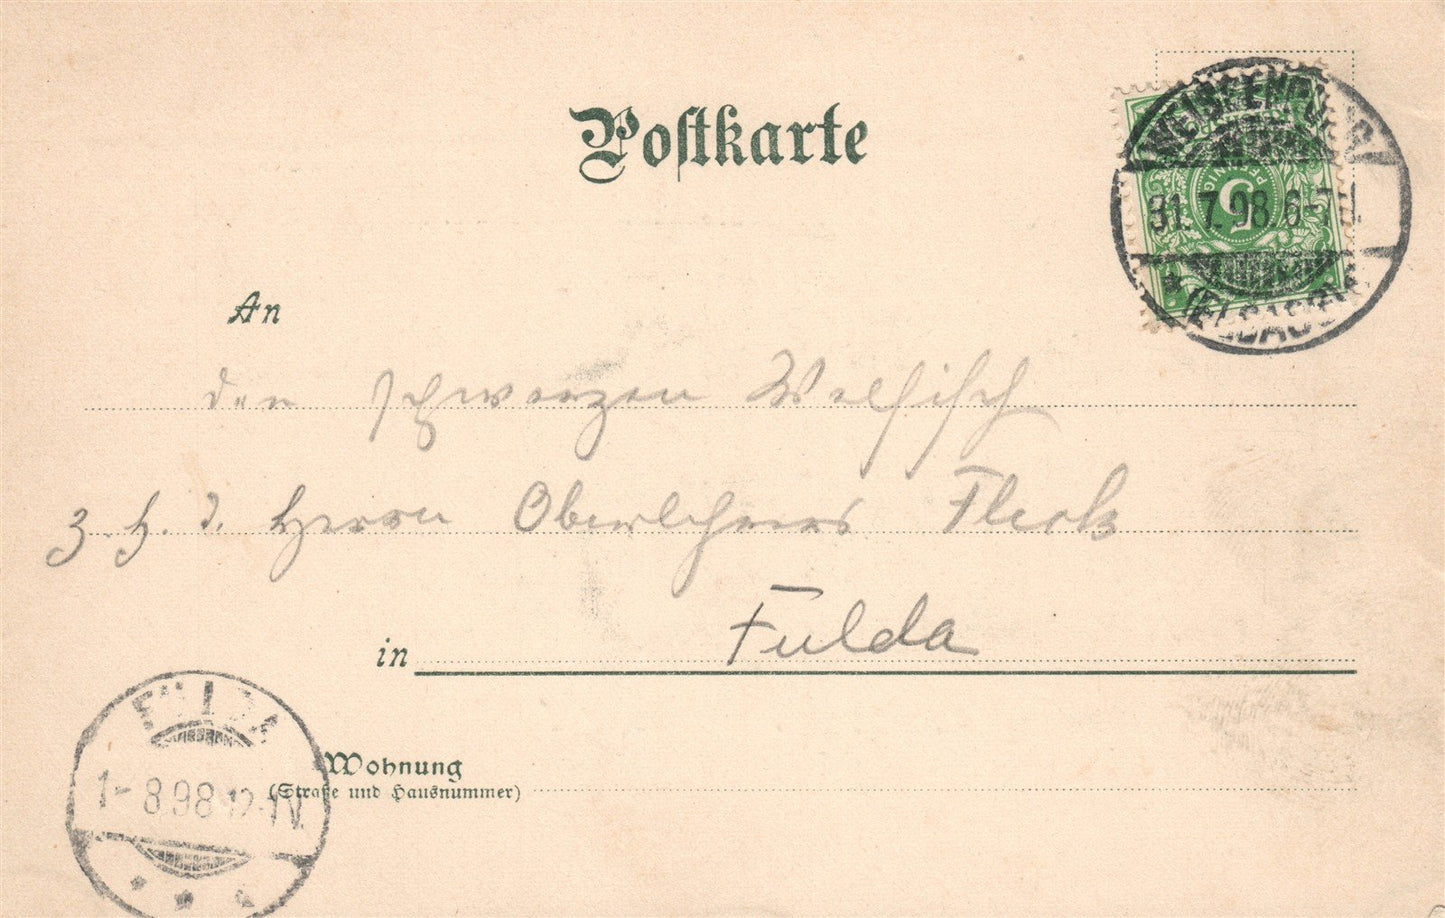 Postkarte
WEISSENBURG
31.7.98.6-7N.
* (ELSASS) *
5
PFENNIG
An
den schwarzen Walfisch
z. H. d. Herrn Oberlehrers Fleck
in Fulda
FULDA
1-8.98.12-1V.
Wohnung
(Straße und Hausnummer)